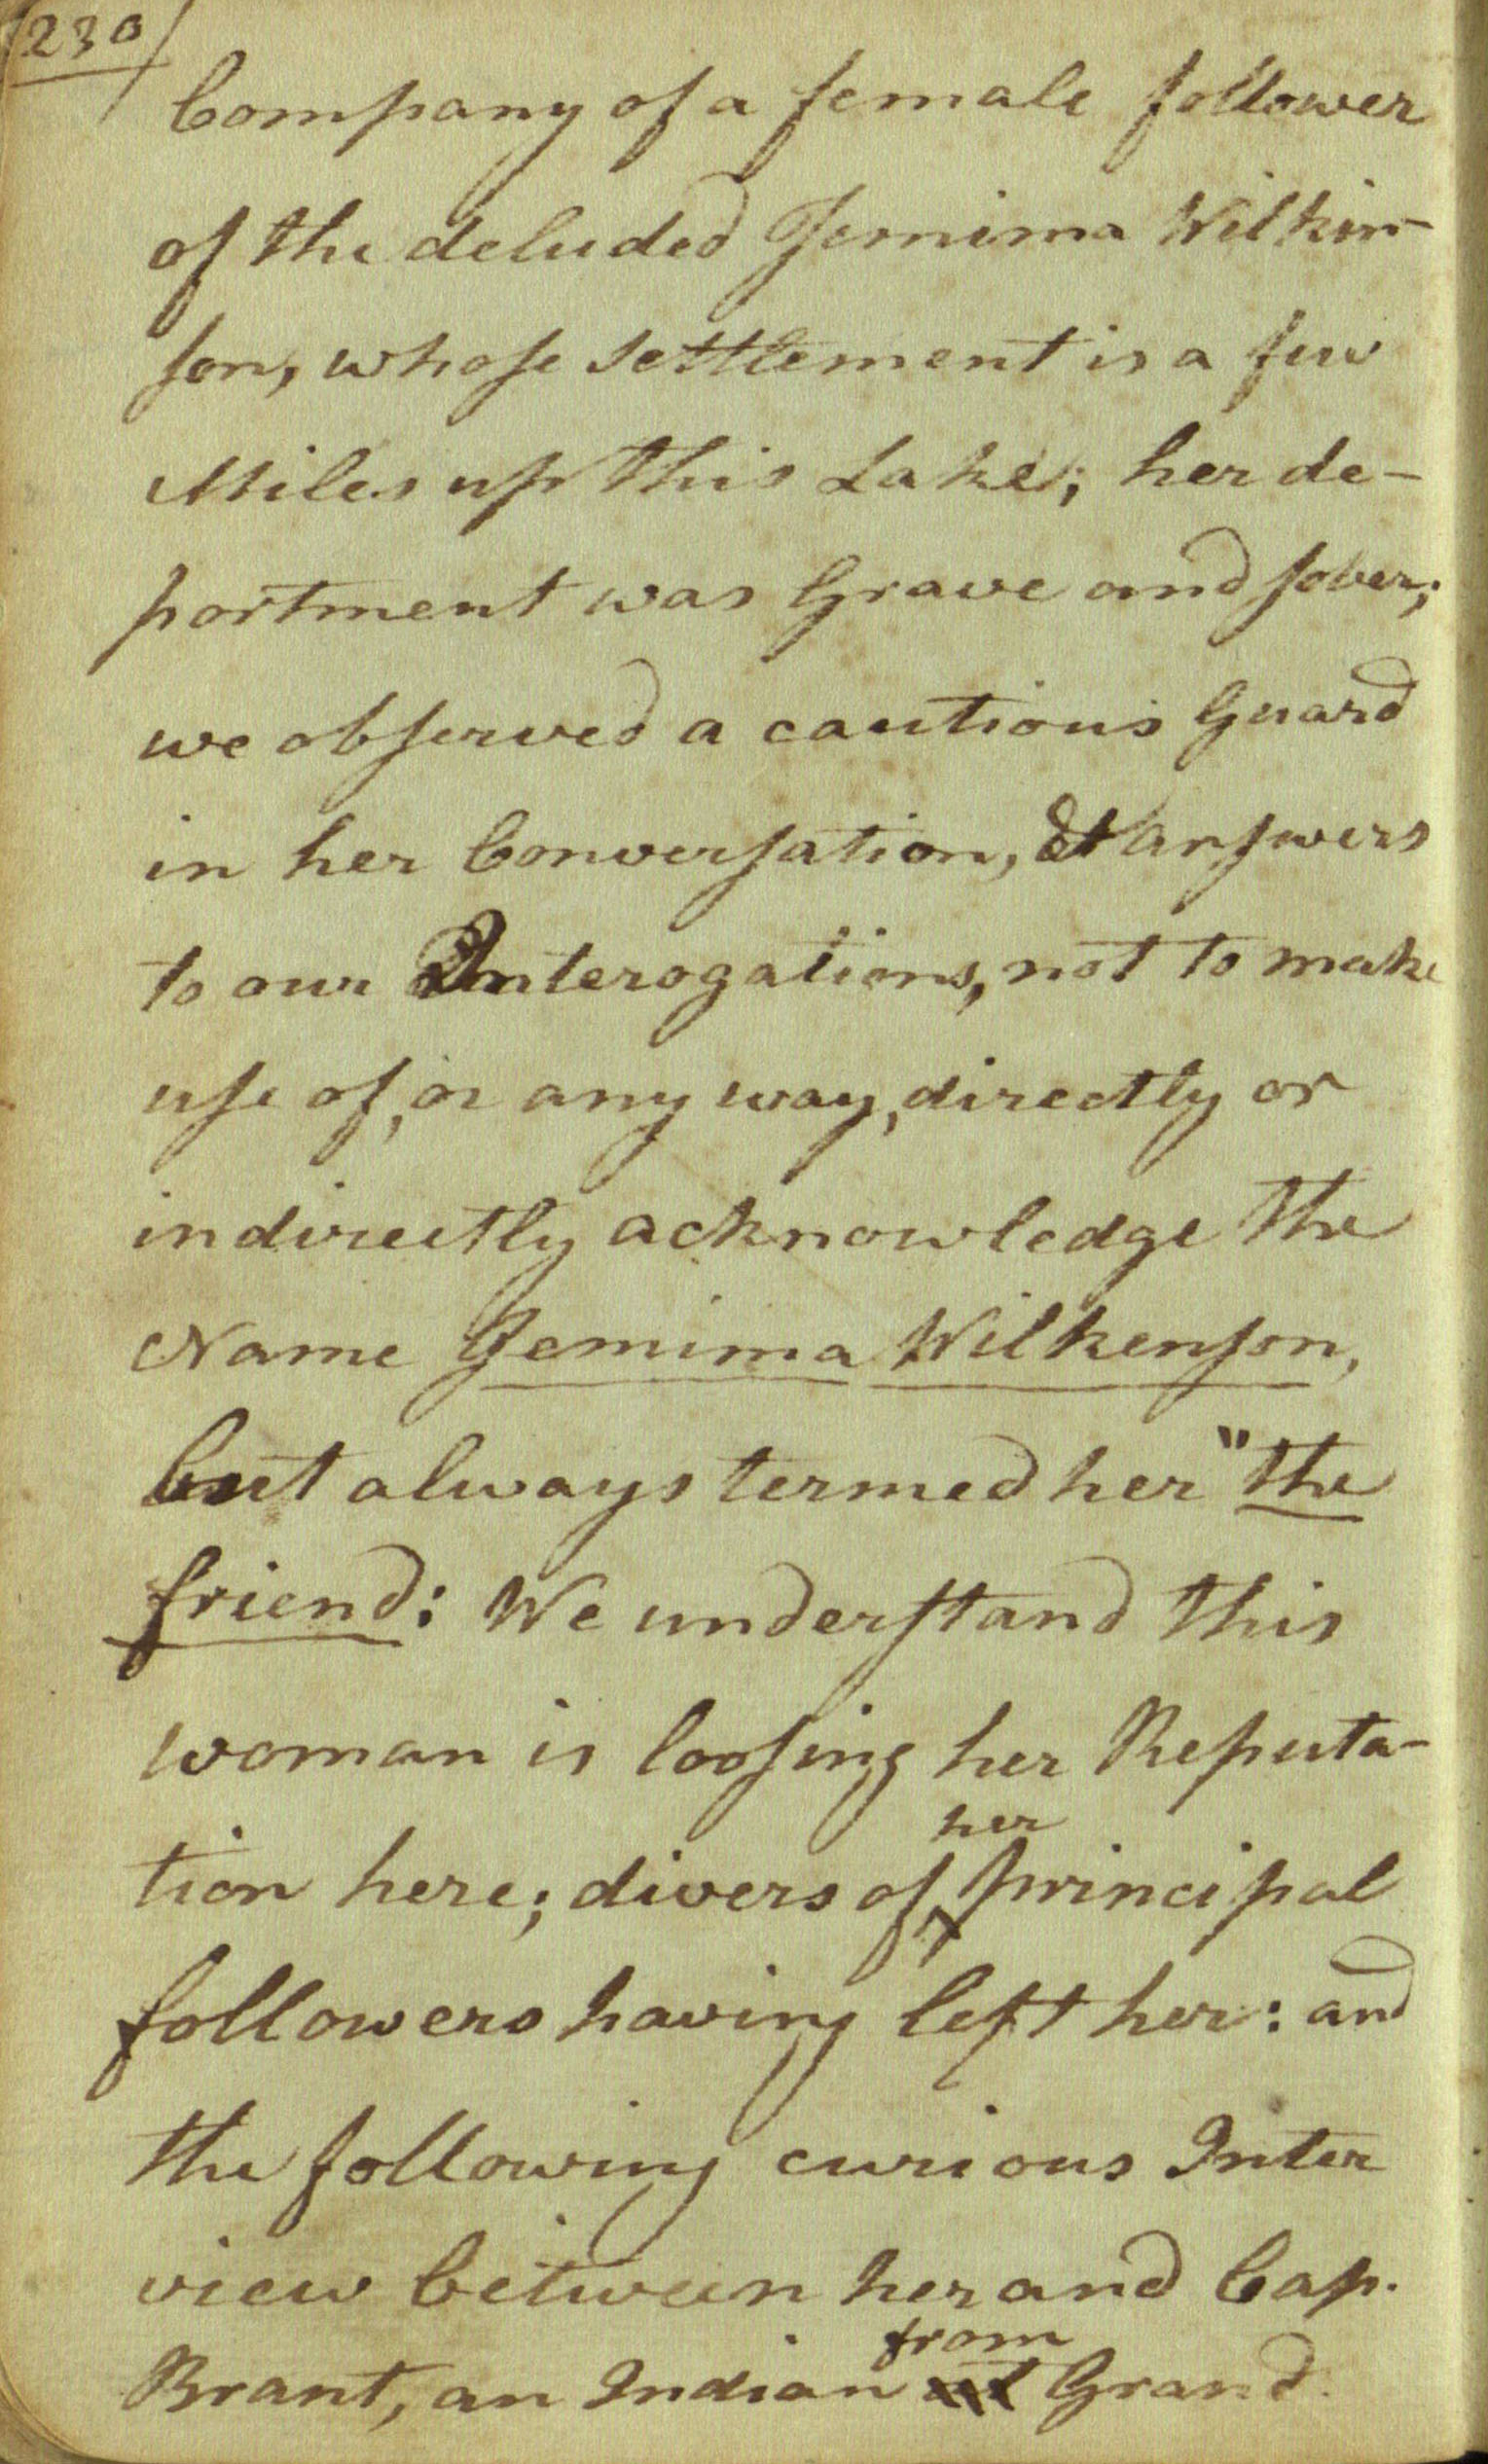 230
Company of a female follower
of the deluded Jemima Wilkin-
son, whose settlement is a few
Miles up this Lake; her de-
portment was Grave and sober;
we observed a cautious Guard
in her Conversation, & answers
to our Interogations, not to make
use of, or any way, directly or
indirectly acknowledge the
Name Jemima Wilkenson,
but always termed her "the
friend: We understand this
woman is loosing her Reputa-
her
tion here; divers of principal
followers having left her: and
the following curious Inter
view between her and Cap.
from
Brant, an Indian at Grand